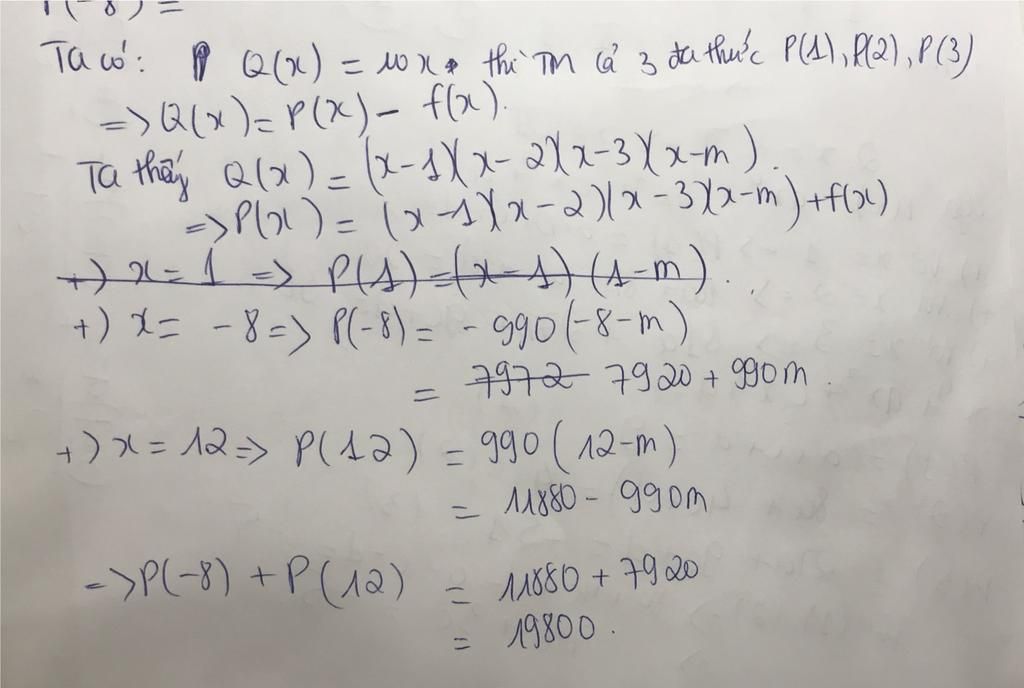 P(-8) =
Ta có: Q(x) = 10x. thì TM cả 3 đa thức P(1), P(2), P(3)
=> Q(x) = P(x) - f(x).
Ta thấy Q(x) = (x-1)(x-2)(x-3)(x-m).
=> P(x) = (x-1)(x-2)(x-3)(x-m) + f(x)
+) x = 1 => P(1) = (x-1) (1-m).
+) x = -8 => P(-8) = -990(-8-m)
= 7972 7920 + 990m.
+) x = 12 => P(12) = 990(12-m)
= 11880 - 990m
=> P(-8) + P(12) = 11880 + 7920
= 19800.